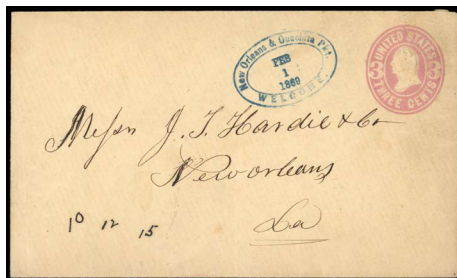 New Orleans & Ouachita Pkt.
FEB
1
1869
WELCOME.
UNITED STATES
THREE CENTS
Messrs J. T. Hardie & Co
New orleans
La
10 12 15